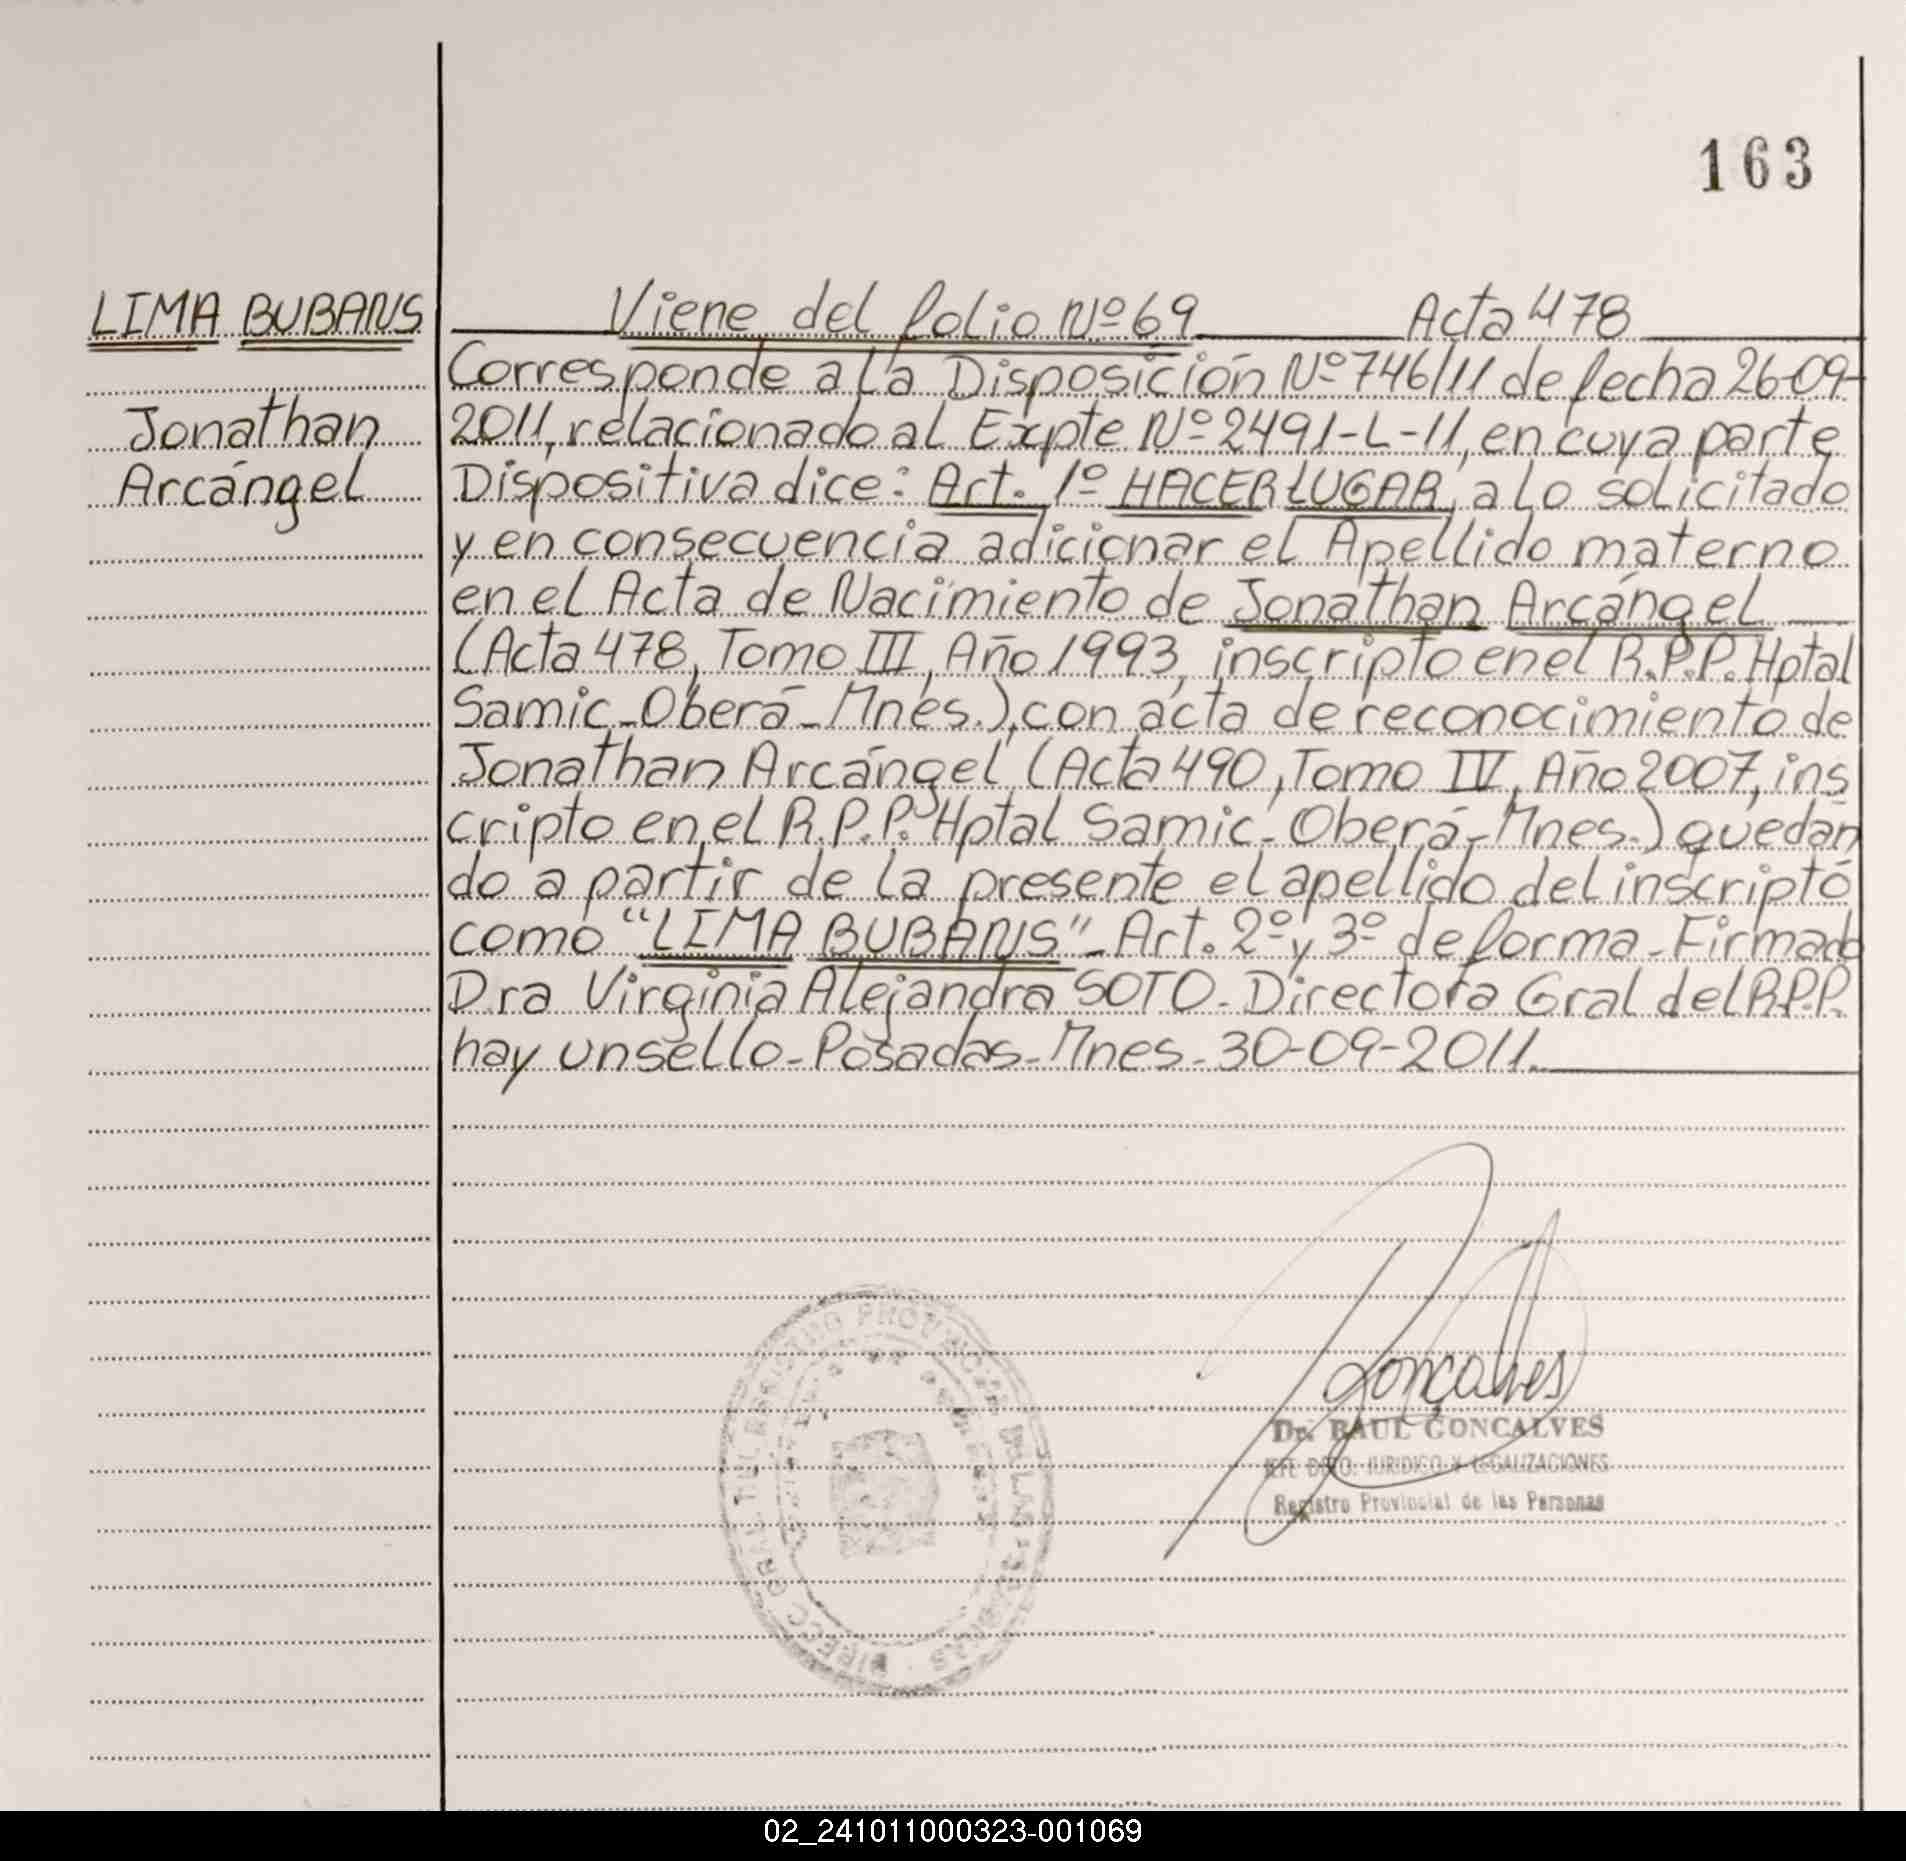 163
LIMA BUBANS
Jonathan
Arcángel
Viene del folio Nº 69 Acta 478
Corresponde a la Disposición Nº 746/11 de fecha 26-09-
2011, relacionado al Expte Nº 2491-L-11, en cuya parte
Dispositiva dice: Art. 1º HACER LUGAR, a lo solicitado
y en consecuencia adicionar el Apellido materno
en el Acta de Nacimiento de Jonathan Arcángel
(Acta 478, Tomo III, Año 1993, inscripto en el R.P.P. Hptal
Samic-Oberá-Mnes.), con acta de reconocimiento de
Jonathan Arcángel (Acta 490, Tomo IV, Año 2007, ins
cripto en el R.P.P. Hptal Samic-Oberá-Mnes.) quedan
do a partir de la presente el apellido del inscripto
como "LIMA BUBANS"-Art. 2º y 3º de forma-Firmado
Dra Virginia Alejandra SOTO-Directora Gral del R.P.P.
hay un sello-Posadas-Mnes-30-09-2011.
Gonçalves
Dr. RAUL GONCALVES
JEFE DPTO. JURIDICO Y LEGALIZACIONES
Registro Provincial de las Personas
DIRECC GRAL DEL REGISTRO PROVINCIAL DE LAS PERSONAS
02_241011000323-001069